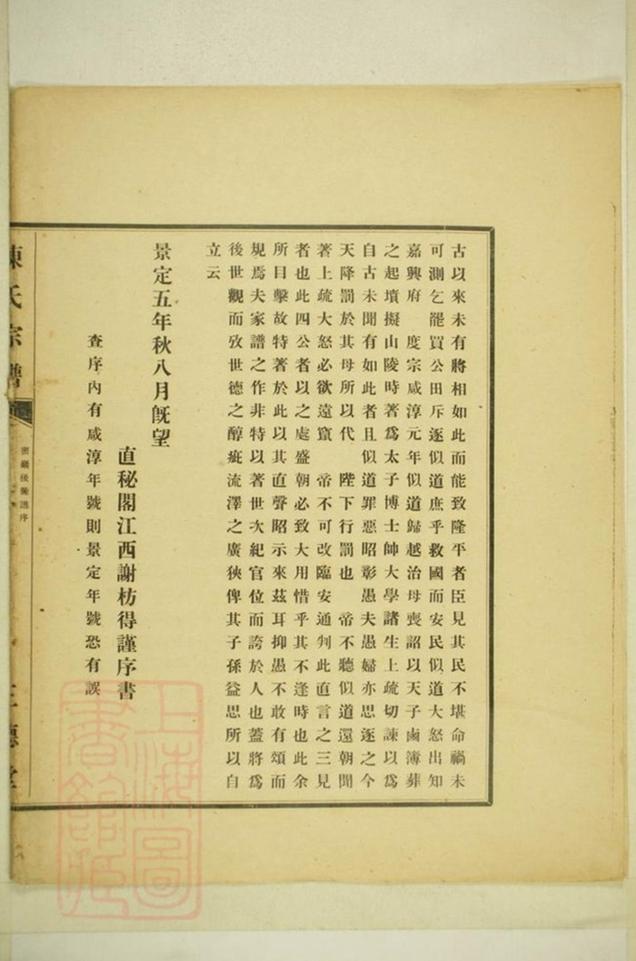 古以來未有將相如此而能致隆平者臣見其民不堪命禍未
可測乞罷買公田斥逐似道庶乎救國而安民似道大怒出知
嘉興府　度宗咸淳元年似道歸越治母喪詔以天子鹵簿葬
之起墳擬山陵時著爲太子博士帥大學諸生上疏切諫以爲
自古未聞有如此者且似道罪惡昭彰愚夫愚婦亦思逐之今
天降罰於其母所以代　陛下行罰也　帝不聽似道還朝聞
著上疏大怒必欲遠竄　帝不可改臨安通判此直言之三見
者也此四公者以之處盛朝必致大用惜乎其不逢時也此余
所目擊故特著於此以其直聲昭示來茲耳抑愚不敢有頌而
規焉夫家譜之作非特以著世次紀官位而誇於人也蓋將爲
後世觀而攷世德之醇疵流澤之廣狹俾其子孫益思所以自
立云
景定五年秋八月旣望
直秘閣江西謝枋得謹序書
查序內有咸淳年號則景定年號恐有誤
陳氏宗譜
後
譜序
上海圖
書館藏